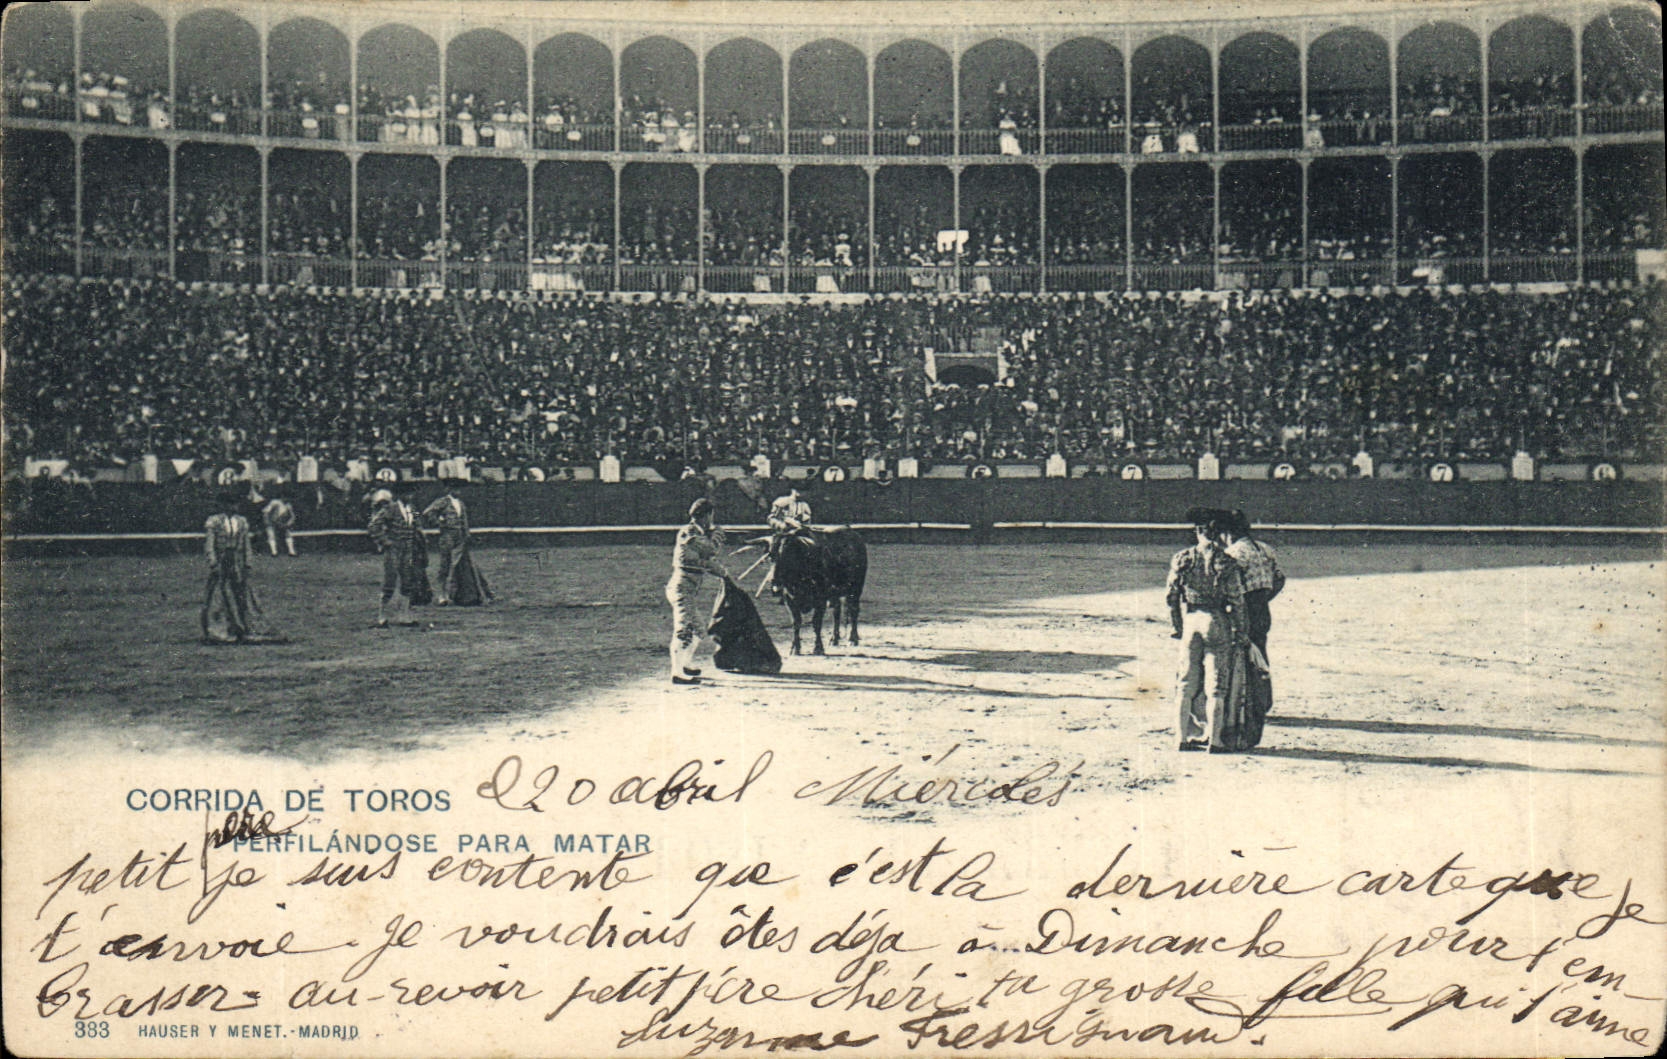 CORRIDA DE TOROS 20 abril Miércoles
père
PERFILÁNDOSE PARA MATAR
petit je suis contente que c'est la dernière carte que je
t'envoie. Je voudrais êtes déja à... Dimanche pour t'em-
brasser- au-revoir petit père chéri ta grosse fille qui t'aime
Suzanne
383 HAUSER Y MENET.-MADRID
7
7
7
7